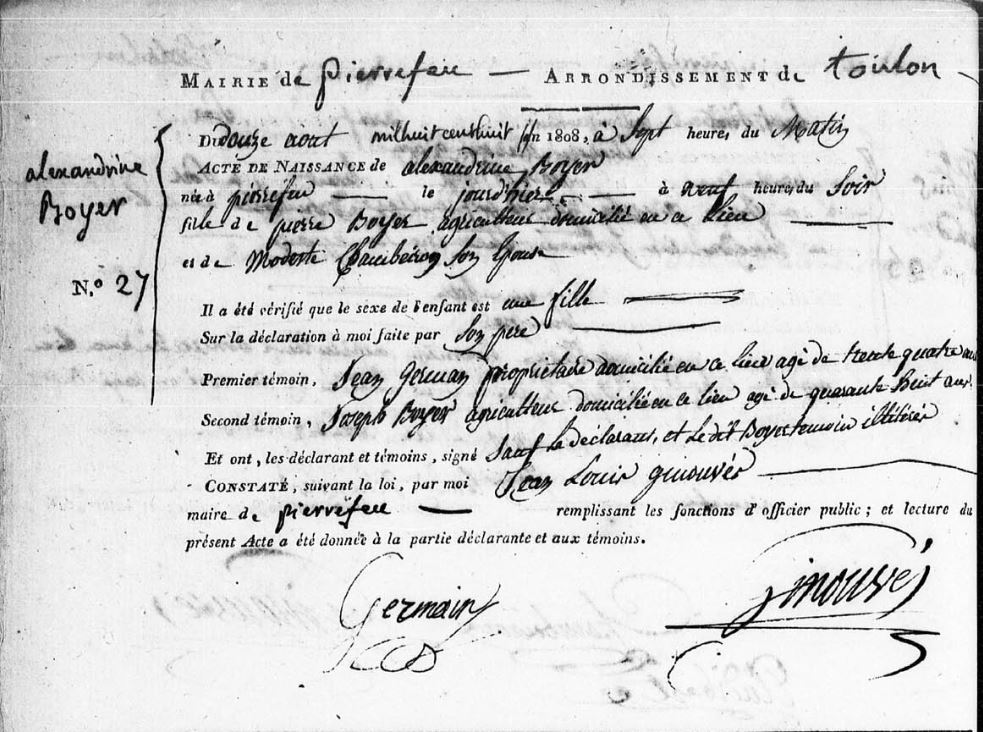 MAIRIE de pierrefeu — ARRONDISSEMENT de toulon
Du douze aout mil huit cent huit An 1808, à Sept heures du Matin
alexandrine Boyer
ACTE DE NAISSANCE de alexandrine Boyer
née à pierrefeu — le jourd'hier — à neuf heures du Soir
fille de pierre Boyer agriculteur domicilié en ce lieu
et de Modeste Son Epouse
N.º 27
Il a été vérifié que le sexe de l'enfant est une fille
Sur la déclaration à moi faite par Son pere
Premier témoin, Jean Germain propriétaire domicilié en ce lieu agé de trente quatre ans
Second témoin, Joseph Boyer agriculteur domicilié en ce lieu agé de quarante huit ans
Et ont, les déclarant et témoins, signé Sauf le déclarant, et le dit Boyer temoin illitérés
CONSTATÉ, suivant la loi, par moi Jean Louis ginouvés
maire de pierrefeu — remplissant les fonctions d'officier public; et lecture du
présent Acte a été donnée à la partie déclarante et aux témoins.
Germain ginouvés